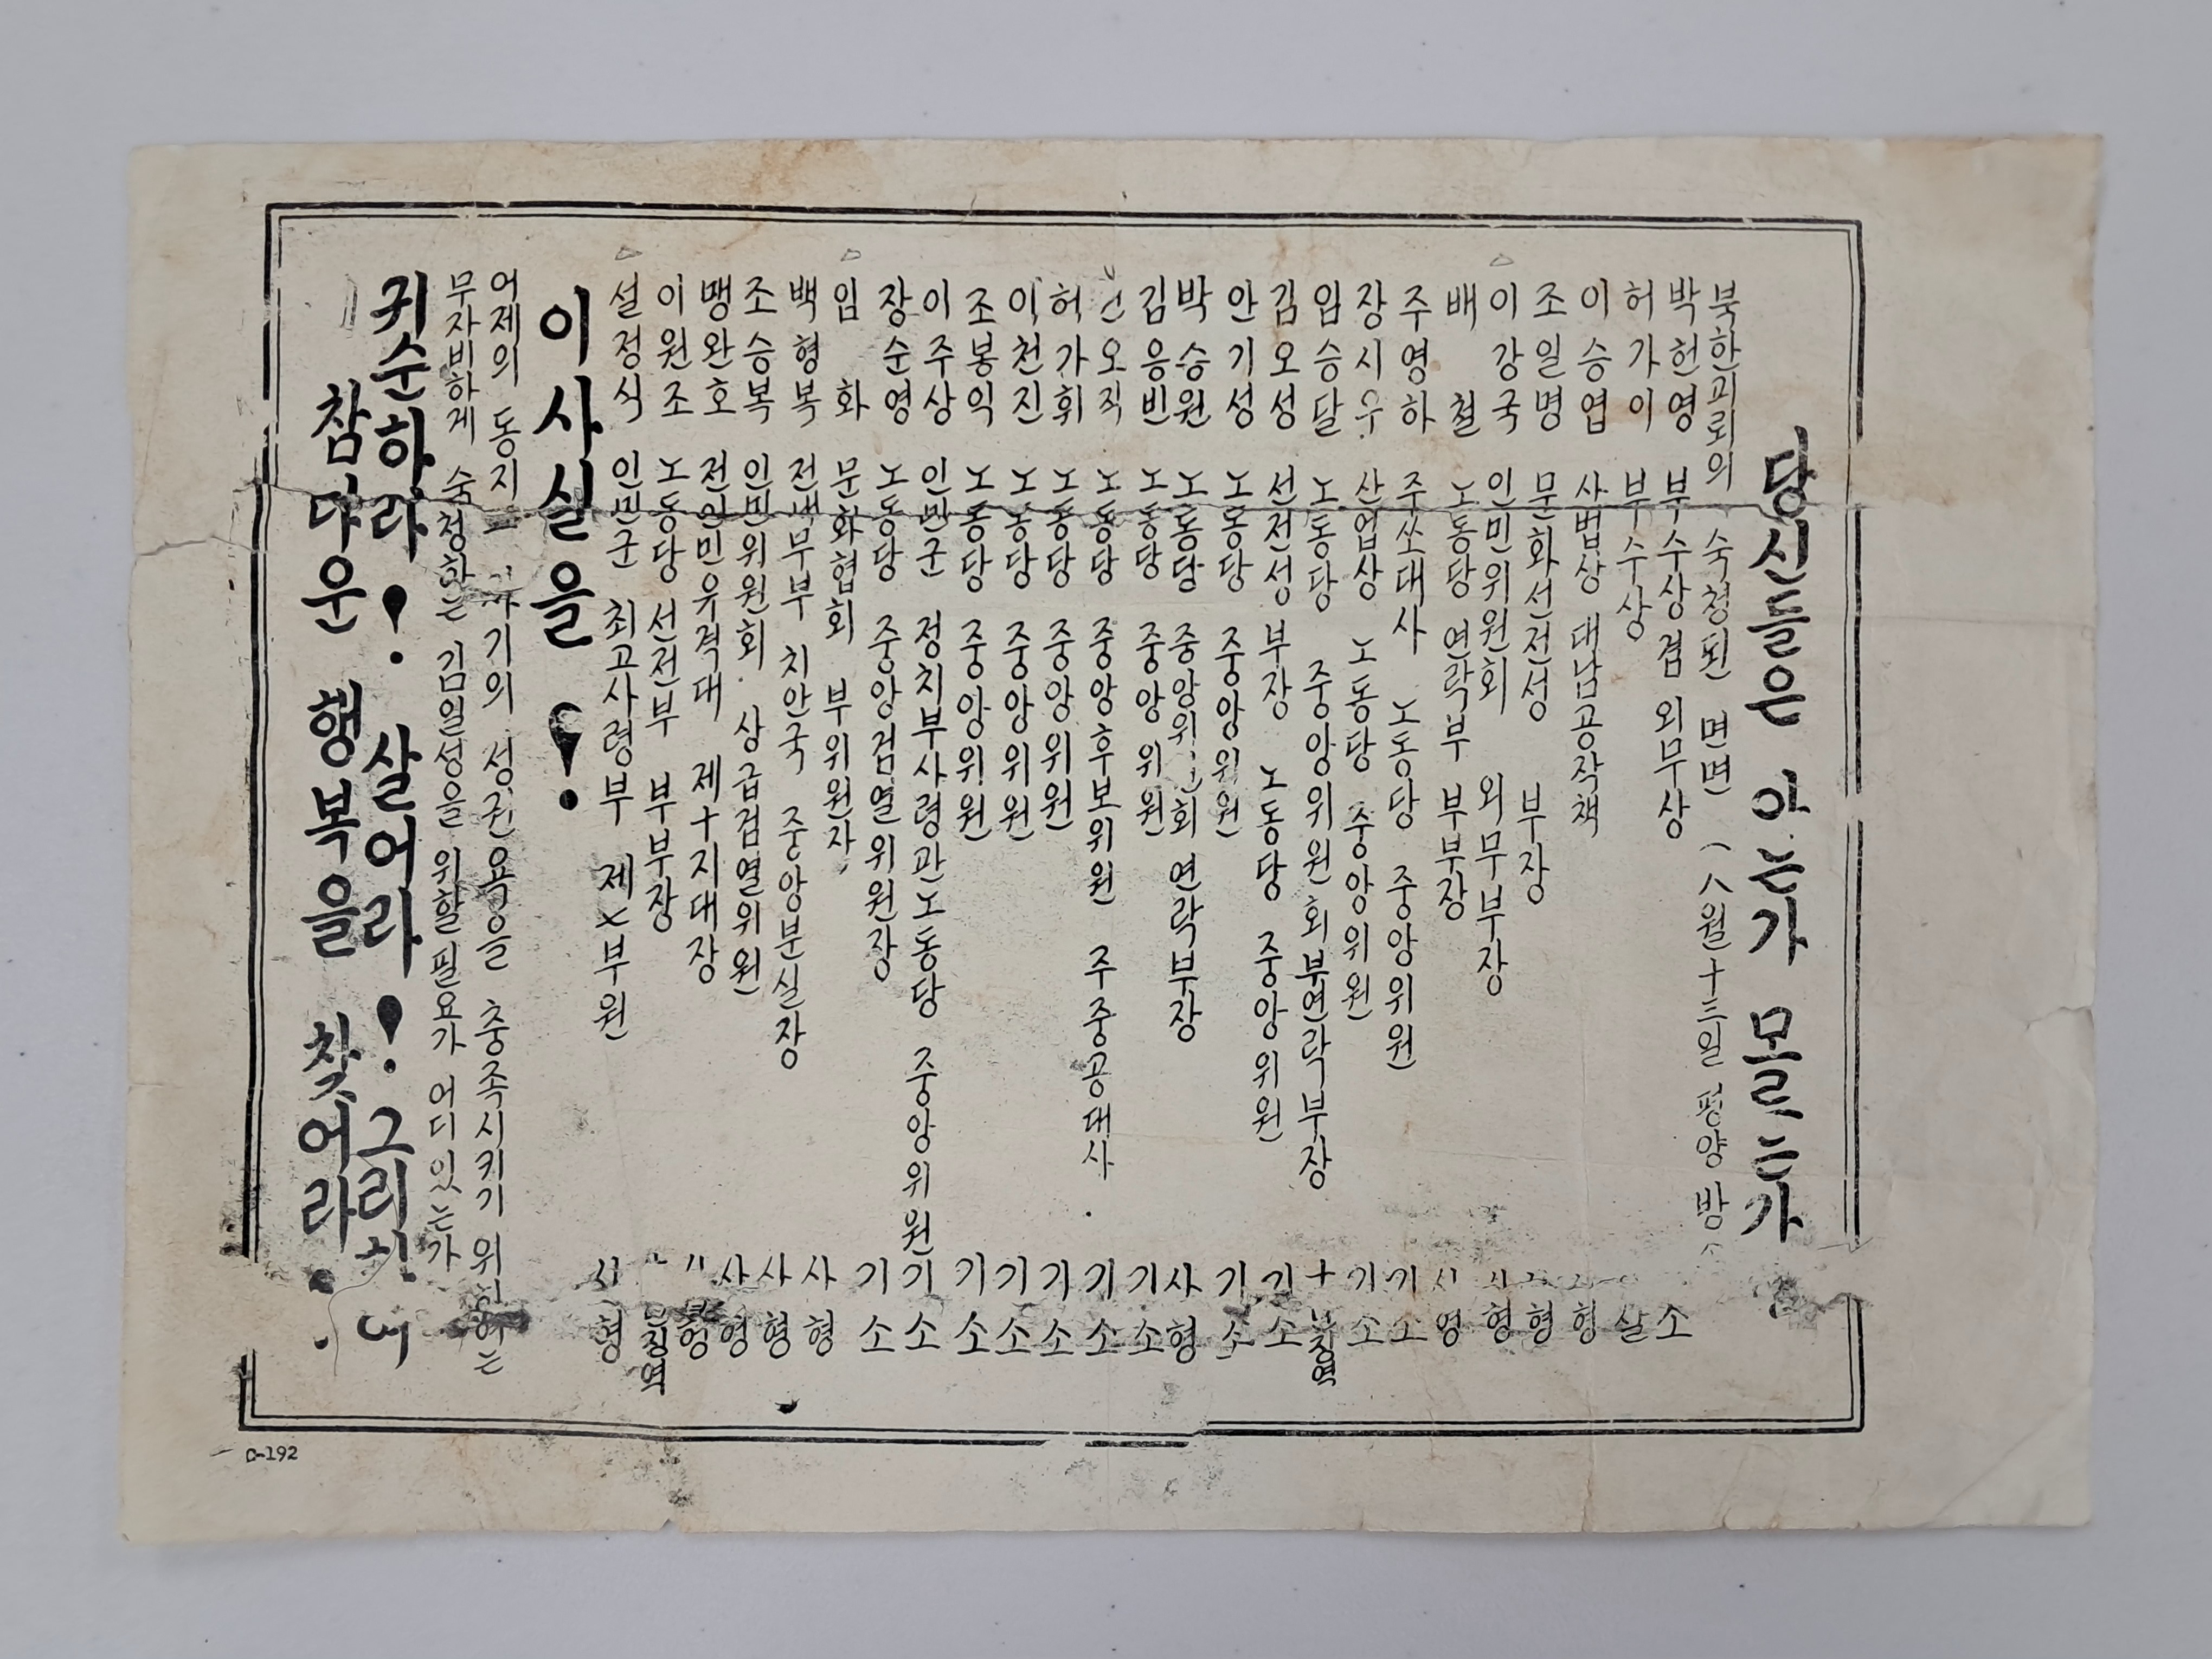 당신들은 아는가 모르는가
북한괴뢰의 숙청된 면면 (八월十三일 평양 방
박헌영 부수상겸 외무상 소
허가이 부수상 살
이승엽 사법상 대남공작책 형
조일명 문화선전성 부장 형
이강국 인민위원회 외무부장 형
배철 노동당 연락부 부부장
주영하 주쏘대사 노동당 중앙위원 기소
장시우 산업상 노동당 중앙위원 기소
임승달 노동당 중앙위원회부연락부장 징역
김오성 선전성 부장 노동당 중앙위원 기소
안기성 노동당 중앙위원 기소
박승원 노동당 중앙위 회 연락부장 사형
김응빈 노동당 중앙위원 기소
오직 노동당 중앙후보위원 주중공대사 기소
허가휘 노동당 중앙위원 기소
이천진 노동당 중앙위원 기소
조봉익 노동당 중앙위원 기소
이주상 인민군 정치부사령관노동당 중앙위원 기소
장순영 노동당 중앙검열위원장 기소
임화 문화협회 부위원장 사형
백형복 전내무부 치안국 중앙분실장 사형
조승복 인민위원회 상급검열위원
맹완호 전인민유격대 제十지대장
이원조 노동당 선전부 부부장 징역
설정식 인민군 최고사령부 제 부원 형
이사실을!
어제의 동지 자기의 성권욕을 충족시키기
무자비하게 숙청하는 김일성을 위할 필요가 어디 있는가
귀순하라! 살어라! 그리하여
참다운 행복을 찾어라.
C-192